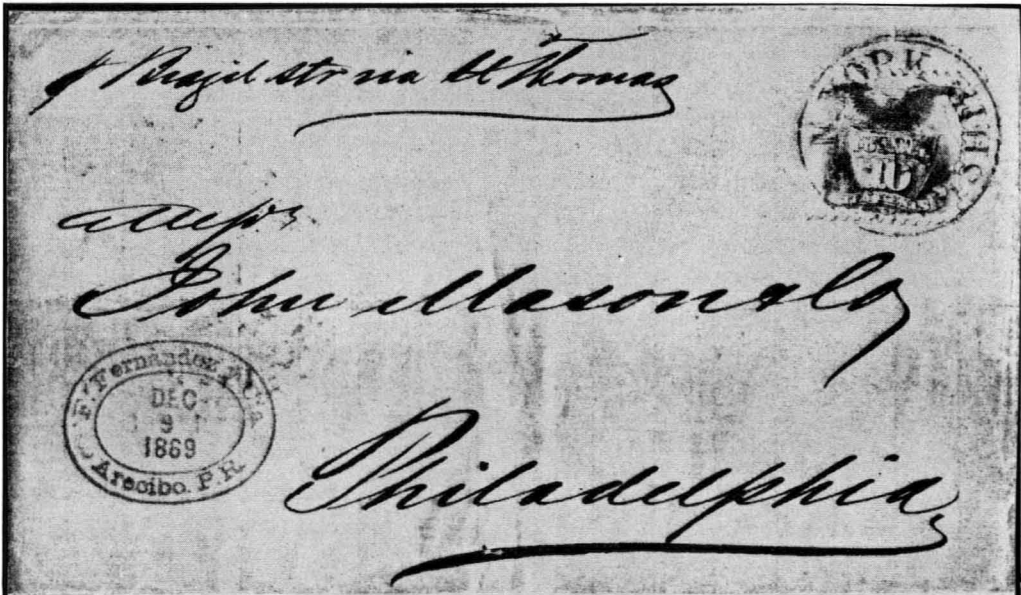 p Brazil Str via St Thomas
N. YORK
SHIP
10
Messrs
John Mason & Co
F. Fernandez
DEC
9
1869
Arecibo. P.R.
Philadelphia